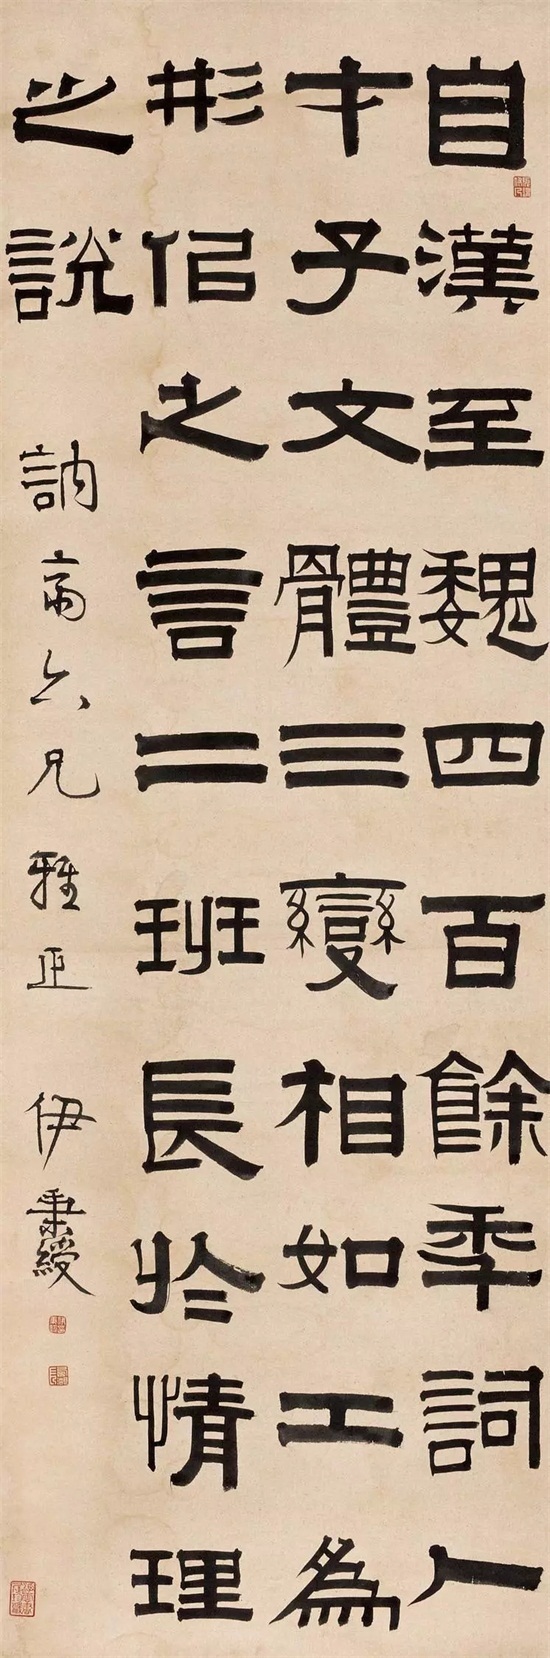 自漢至魏四百餘年詞人
才子文體三變相如工為
形佀之言二班長於情理
之說
訥斋六兄雅正 伊秉綬